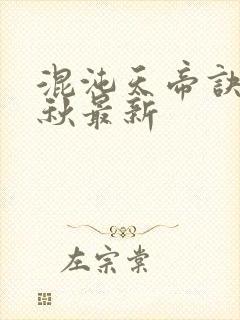 混沌天帝诀
秋最新
左宗棠